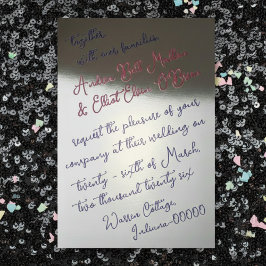 together
with our families
& Elliot
request the pleasure of your
company at their wedding on
twenty - sixth of March,
two thousand twenty six
Warren Cottage,
00000